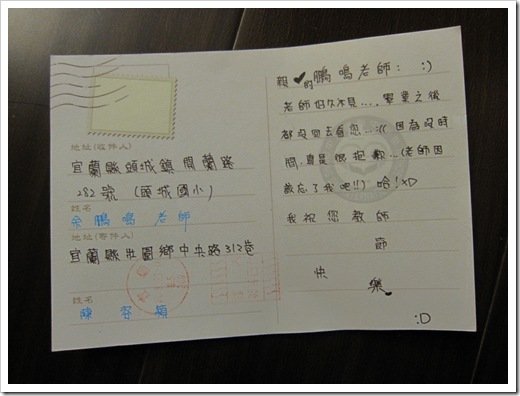 地址(收件人)
宜蘭縣頭城鎮開蘭路
282號 (頭城國小)
姓名
余鵬鳴 老師
地址(寄件人)
宜蘭縣壯圍鄉中央路312巷
姓名
陳 容
親❤的鵬鳴老師: :)
老師好久不見..., 畢業之後
都沒回去看您...:(( 因為沒時
間, 真是很抱歉...(老師因
該忘了我吧!!) 哈!XD
我祝您教師
節
快
樂
:D